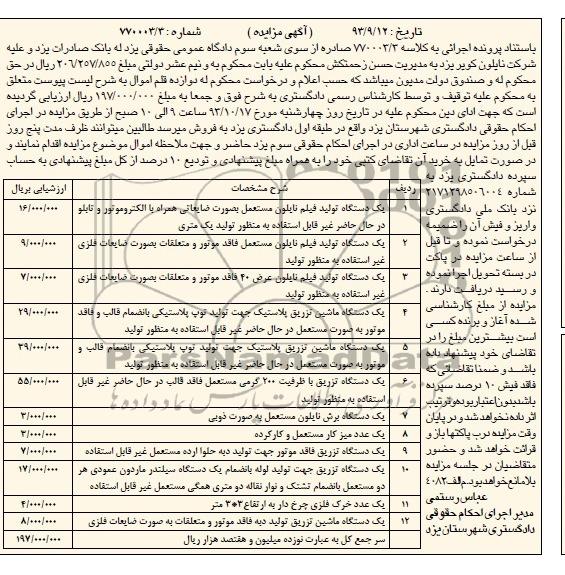 تاریخ : ۹۳/۹/۱۲ (آگهی مزایده) شماره : ۷۷۰۰۰۳/۳
باستناد پرونده اجرائی به کلاسه ۷۷۰۰۰۳/۳ صادره از سوی شعبه سوم دادگاه عمومی حقوقی یزد له بانک صادرات یزد و علیه
شرکت نایلون کویر یزد به مدیریت حسن زحمتکش محکوم علیه بابت محکوم به و نیم عشر دولتی مبلغ ۲۰۶/۲۵۷/۸۵۵ ریال در حق
محکوم له و صندوق دولت مدیون میباشد که حسب اعلام و درخواست محکوم له دوازده قلم اموال به شرح لیست پیوست متعلق
به محکوم علیه توقیف و توسط کارشناس رسمی دادگستری به شرح فوق و جمعا به مبلغ ۱۹۷/۰۰۰/۰۰۰ ریال ارزیابی گردیده
است که جهت ادای دین محکوم علیه در تاریخ روز چهارشنبه مورخ ۹۳/۱۰/۱۷ ساعت ۹ الی ۱۰ صبح از طریق مزایده در اجرای
احکام حقوقی دادگستری شهرستان یزد واقع در طبقه اول دادگستری یزد به فروش میرسد طالبین میتوانند ظرف مدت پنج روز
قبل از روز مزایده در ساعت اداری در اجرای احکام حقوقی سوم یزد حاضر و جهت ملاحظه اموال موضوع مزایده اقدام نمایند و
در صورت تمایل به خرید آن تقاضای کتبی خود را به همراه مبلغ پیشنهادی و تودیع ۱۰ درصد از کل مبلغ پیشنهادی به حساب
سپرده دادگستری یزد به
شماره ۲۱۷۱۲۹۸۵۰۶۰۰۴
نزد بانک ملی دادگستری
واریز و فیش آن را ضمیمه
درخواست نموده و تا قبل
از ساعت مزایده در پاکت
در بسته تحویل اجرا نموده
و رسید دریافت دارند.
مزایده از مبلغ کارشناسی
شده آغاز و برنده کسی
است بیشترین مبلغ را در
تقاضای خود پیشنهاد داده
باشد و ضمنا تقاضائی که
فاقد فیش ۱۰ درصد سپرده
باشد بدون اعتبار بوده و ترتیب
اثر داده نخواهد شد و در پایان
وقت مزایده درب پاکتها باز و
قرائت خواهد شد و حضور
متقاضیان در جلسه مزایده
بلامانع خواهد بود. م/الف ۴۰۸۲
عباس رستمی
مدیر اجرای احکام حقوقی
دادگستری شهرستان یزد
ردیف شرح مشخصات ارزشیابی بریال
۱ یک دستگاه تولید فیلم نایلون مستعمل بصورت ضایعاتی همراه با الکتروموتور و تابلو ۱۶/۰۰۰/۰۰۰
در حال حاضر غیر قابل استفاده به منظور تولید یک متری
۲ یک دستگاه تولید فیلم نایلون مستعمل فاقد موتور و متعلقات بصورت ضایعات فلزی ۹/۰۰۰/۰۰۰
غیر استفاده به منظور تولید
۳ یک دستگاه تولید فیلم نایلون عرض ۴۰ فاقد موتور و متعلقات بصورت ضایعات فلزی ۷/۰۰۰/۰۰۰
غیر استفاده به منظور تولید
۴ یک دستگاه ماشین تزریق پلاستیک جهت تولید توپ پلاستیکی بانضمام قالب و فاقد ۲۹/۰۰۰/۰۰۰
موتور به صورت مستعمل در حال حاضر غیر قابل استفاده به منظور تولید
۵ یک دستگاه ماشین تزریق پلاستیک جهت تولید توپ پلاستیکی بانضمام قالب و ۳۹/۰۰۰/۰۰۰
موتور به صورت مستعمل در حال حاضر غیر قابل استفاده به منظور تولید
۶ یک دستگاه تزریق با ظرفیت ۲۰۰ گرمی مستعمل فاقد قالب در حال حاضر غیر قابل ۵۵/۰۰۰/۰۰۰
استفاده به منظور تولید
۷ یک دستگاه برش نایلون مستعمل به صورت ذوبی ۳/۰۰۰/۰۰۰
۸ یک عدد میز کار مستعمل و کارکرده ۳/۰۰۰/۰۰۰
۹ یک دستگاه تزریق فاقد موتور جهت تولید دبه حلوا ارده مستعمل غیر قابل استفاده ۷/۰۰۰/۰۰۰
۱۰ یک دستگاه تزریق جهت تولید لوله بانضمام یک دستگاه سیلندر ماردون عمودی هر ۱۷/۰۰۰/۰۰۰
دو مستعمل بانضمام تشتک و نوار نقاله دو متری همگی مستعمل غیر قابل استفاده
۱۱ یک عدد خرک فلزی چرخ دار به ارتفاع ۳*۳ متر ۴/۰۰۰/۰۰۰
۱۲ یک دستگاه ماشین تزریق تولید دبه فاقد موتور و متعلقات به صورت ضایعات فلزی ۸/۰۰۰/۰۰۰
سر جمع کل به عبارت نوزده میلیون و هفتصد هزار ریال ۱۹۷/۰۰۰/۰۰۰
ParsNamadData